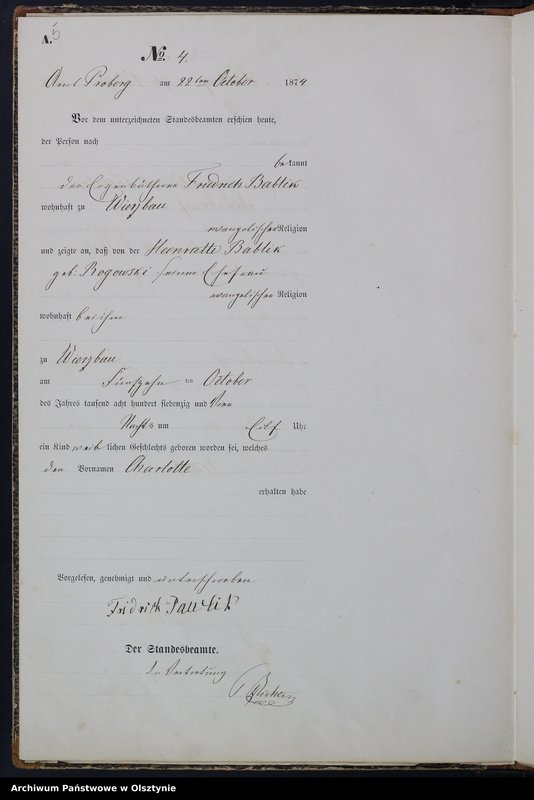 A. 5
No. 4.
Amt Proberg am 22ten October 1874
Vor dem unterzeichneten Standesbeamten erschien heute,
der Person nach
bekannt
der Eigenkäthner Friedrich Bablik
wohnhaft zu Wiersbau
evangelischer Religion
und zeigte an, daß von der Henriette Bablik
geb. Rogowski seiner Ehefrau
evangelischer Religion
wohnhaft bei ihm
zu Wiersbau
am Fünfzehn ten October
des Jahres tausend acht hundert siebenzig und Vier
Nachts um Eilf Uhr
ein Kind weiblichen Geschlechts geboren worden sei, welches
den Vornamen Charlotte
erhalten habe
Vorgelesen, genehmigt und unterschrieben
Fridrich
Der Standesbeamte.
In Vertretung
Archiwum Państwowe w Olsztynie